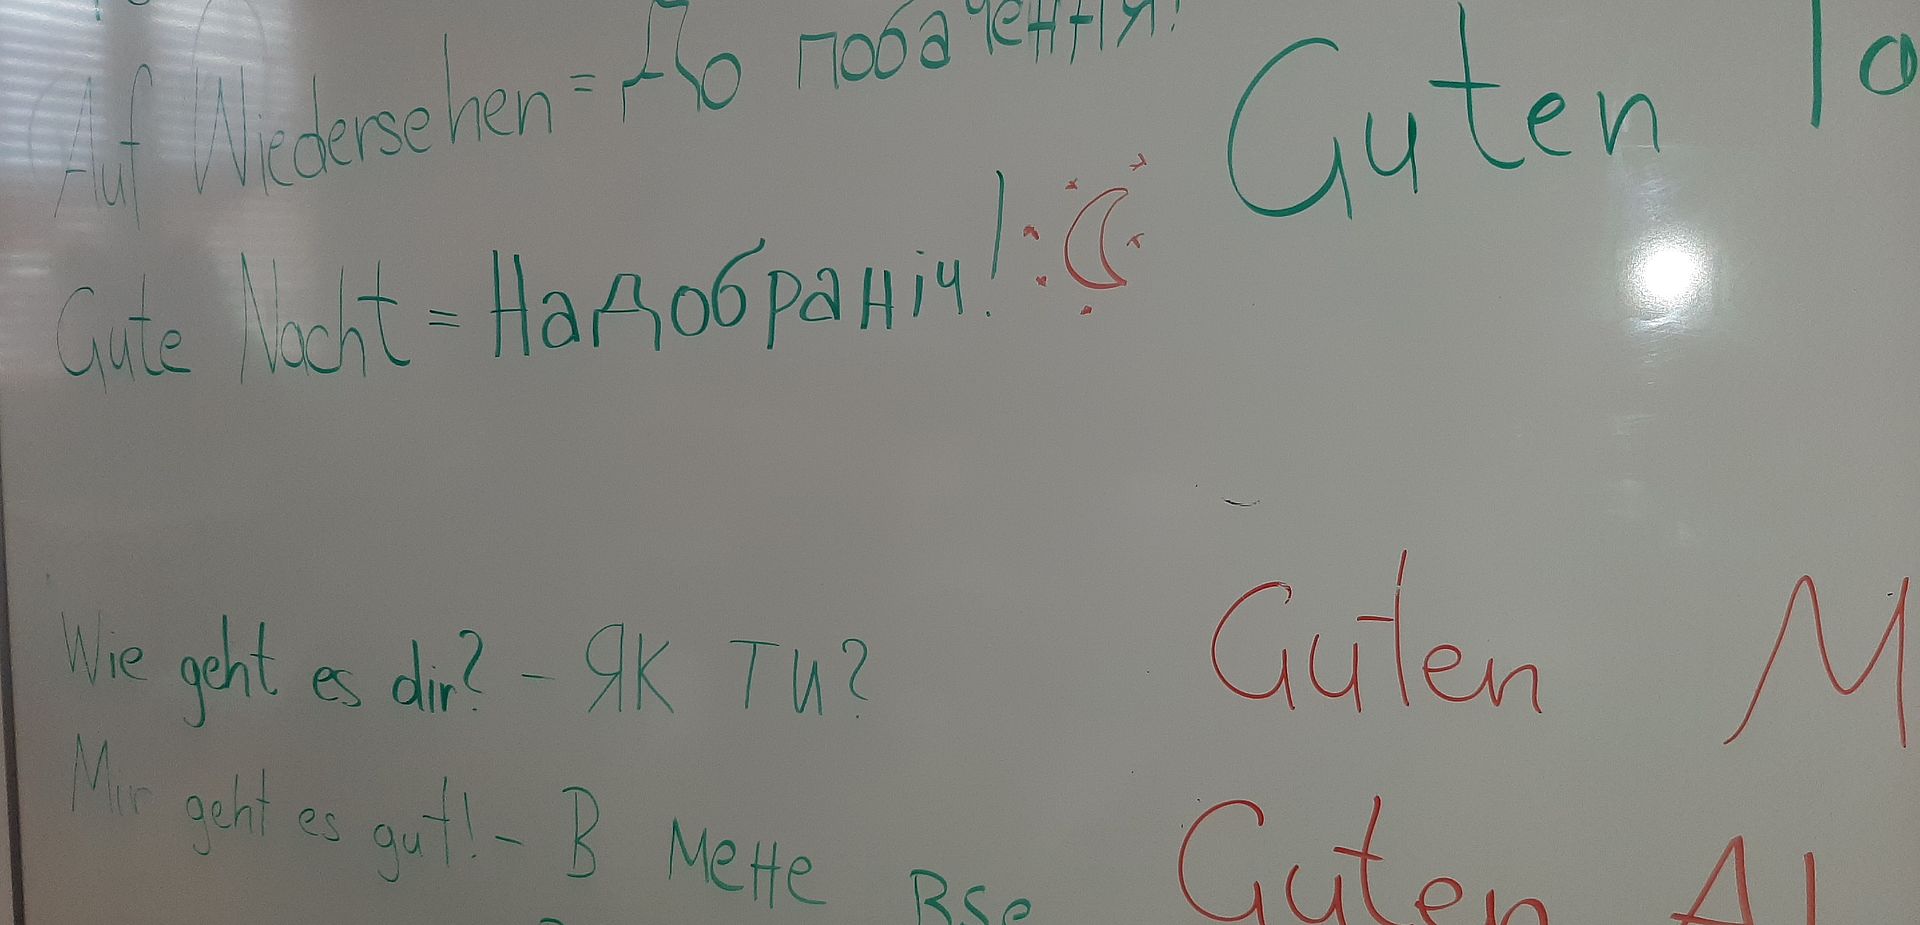 Auf Wiedersehen = До побачення!
Gute Nacht = Надобраніч!
Wie geht es dir? - ЯК ТИ?
Mir geht es gut! - В мене все
Guten Ta
Guten M
Guten A